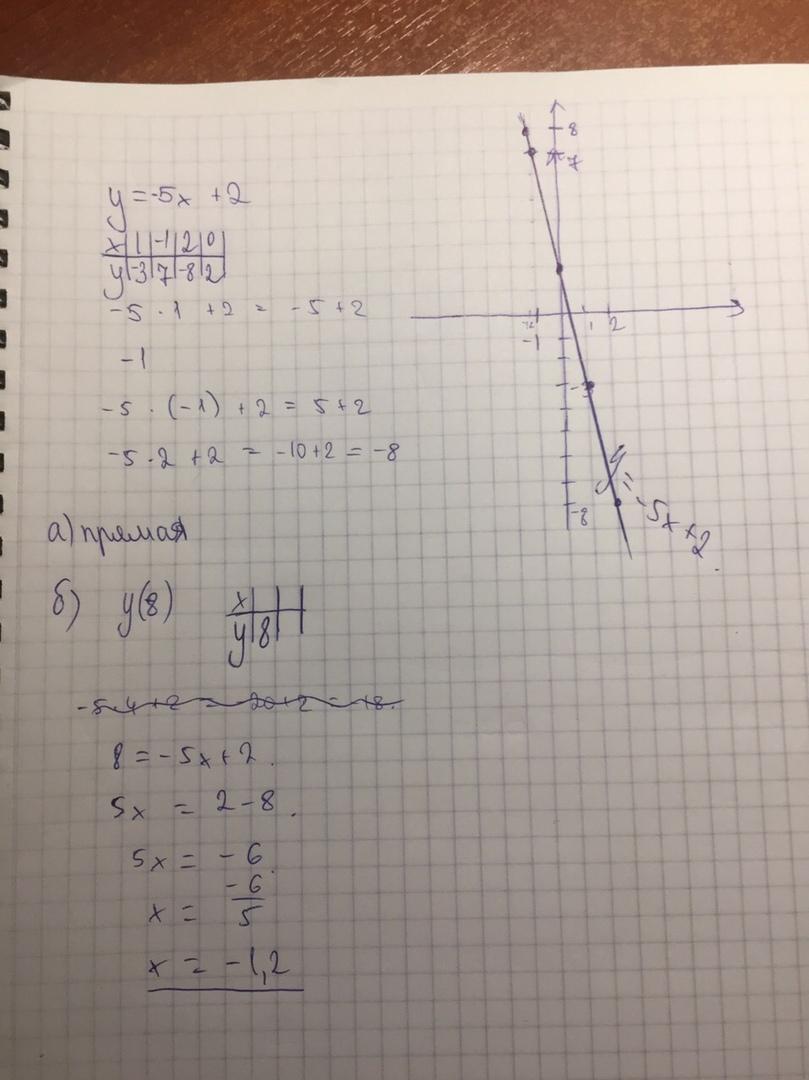 y = -5x + 2
x | 1 | -1 | 2 | 0
y | -3 | 7 | -8 | 2
-5 · 1 + 2 = -5 + 2
-1
-5 · (-1) + 2 = 5 + 2
-5 · 2 + 2 = -10 + 2 = -8
8
7
1 2
-1
-3
-8
y = -5x + 2
а) прямая
б) y(8)
x
y | 8
8 = -5x + 2.
5x = 2 - 8.
5x = -6
x = -6/5
x = -1,2